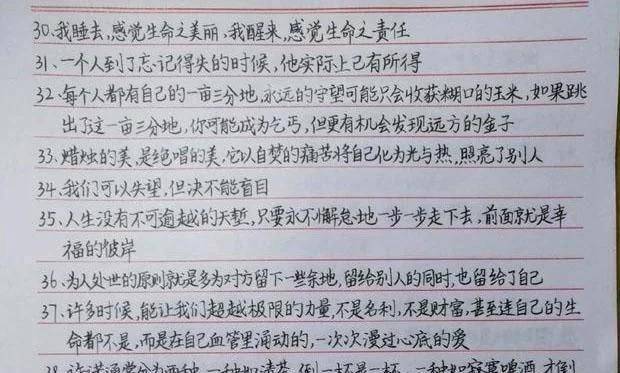 30.我睡去,感觉生命之美丽,我醒来,感觉生命之责任
31.一个人到了忘记得失的时候,他实际上已有所得
32.每个人都有自己的一亩三分地,永远的守望可能只会收获糊口的玉米,如果跳
出了这一亩三分地,你可能成为乞丐,但更有机会发现远方的金子
33.蜡烛的美,是绝唱的美,它以自焚的痛苦将自己化为光与热,照亮了别人
34.我们可以失望,但决不能盲目
35.人生没有不可逾越的天堑,只要永不懈怠地一步一步走下去,前面就是幸
福的彼岸
36.为人处世的原则就是多为对方留下一些余地,留给别人的同时,也留给了自己
37.许多时候,能让我们超越极限的力量,不是名利,不是财富,甚至连自己的生
命都不是,而是在自己血管里涌动的,一次次漫过心底的爱
38.许诺通常分为两种,一种如清茶,倒一杯是一杯,一种如寂寞啤酒,才倒